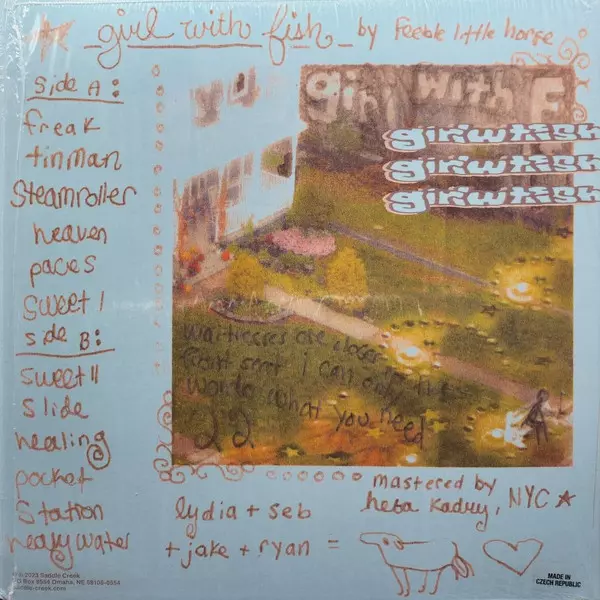 girl with fish by feeble little horse
Side A:
freak
tin man
Steamroller
heaven
paces
Sweet I
Side B:
sweet II
Slide
healing
pocket
Station
heavy water
girl with F
girlw/fish
girlw/fish
girlw/fish
waitresses are closer
front seat i can only
words what you need
22
mastered by
heba Kadry, NYC
lydia + seb
+ jake + ryan =
2023 Saddle Creek
PO Box 8554 Omaha, NE 68108-0554
saddle-creek.com
MADE IN
CZECH REPUBLIC